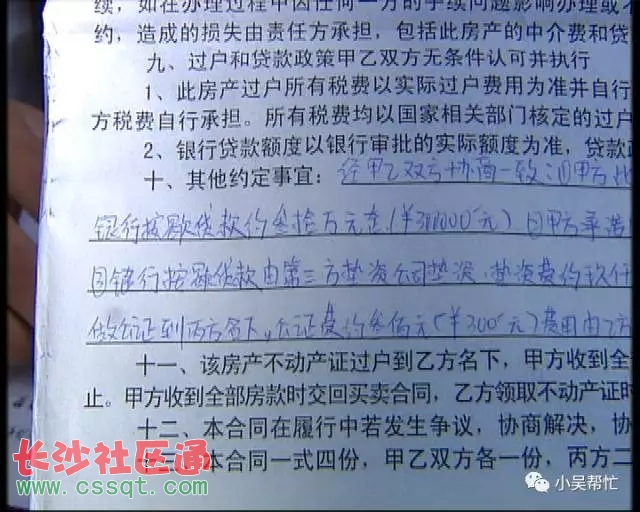 续，如在办理过程中因任何一方的手续问题影响办理或
约，造成的损失由责任方承担，包括此房产的中介费和贷
九、过户和贷款政策甲乙双方无条件认可并执行
1、此房产过户所有税费以实际过户费用为准并自行
方税费自行承担。所有税费均以国家相关部门核定的过户
2、银行贷款额度以银行审批的实际额度为准，贷款
十、其他约定事宜：经甲乙双方协商一致：①甲方
银行按揭贷款约叁拾万元整（￥300000元）②甲方承诺
③银行按揭贷款由第三方垫资公司垫资，垫资费约玖仟
做公证到丙方名下，公证费约叁佰元（￥300元）费用由乙方
十一、该房产不动产证过户到乙方名下，甲方收到全
止。甲方收到全部房款时交回买卖合同，乙方领取不动产证时
十二、本合同在履行中若发生争议，协商解决，协
本合同一式四份，甲乙双方各一份，丙方二
长沙社区通
www.cssqt.com
小吴帮忙